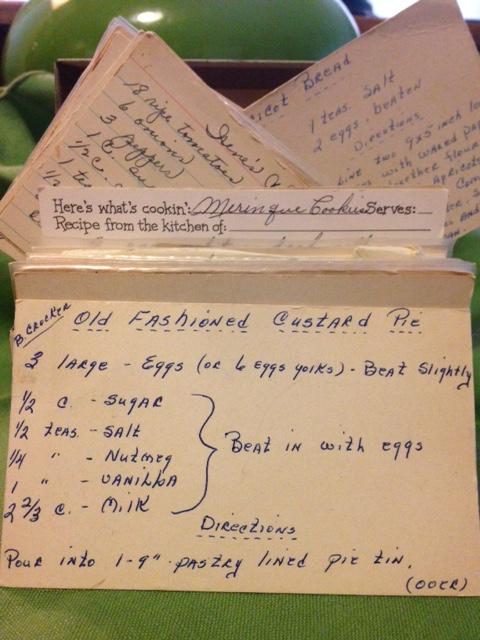 18 ripe tomatoes
6 onions
3 peppers
1 c.
1/2 c.
1 te
1/2
Irene's
icot Bread
1 teas. Salt
2 eggs - beaten
Directions
Line two 9x5 inch lo
with waxed pap
ether flour
Apricots
Here's what's cookin': Meringue Cookies Serves:
Recipe from the kitchen of:
B. Crocker
Old Fashioned Custard Pie
3 large - Eggs (or 6 eggs yolks) - Beat Slightly
1/2 c. - Sugar
1/2 teas. - Salt
1/4 " - Nutmeg
1 " - Vanilla
2 2/3 c. - Milk
Beat in with eggs
Directions
Pour into 1-9" pastry lined pie tin.
(over)